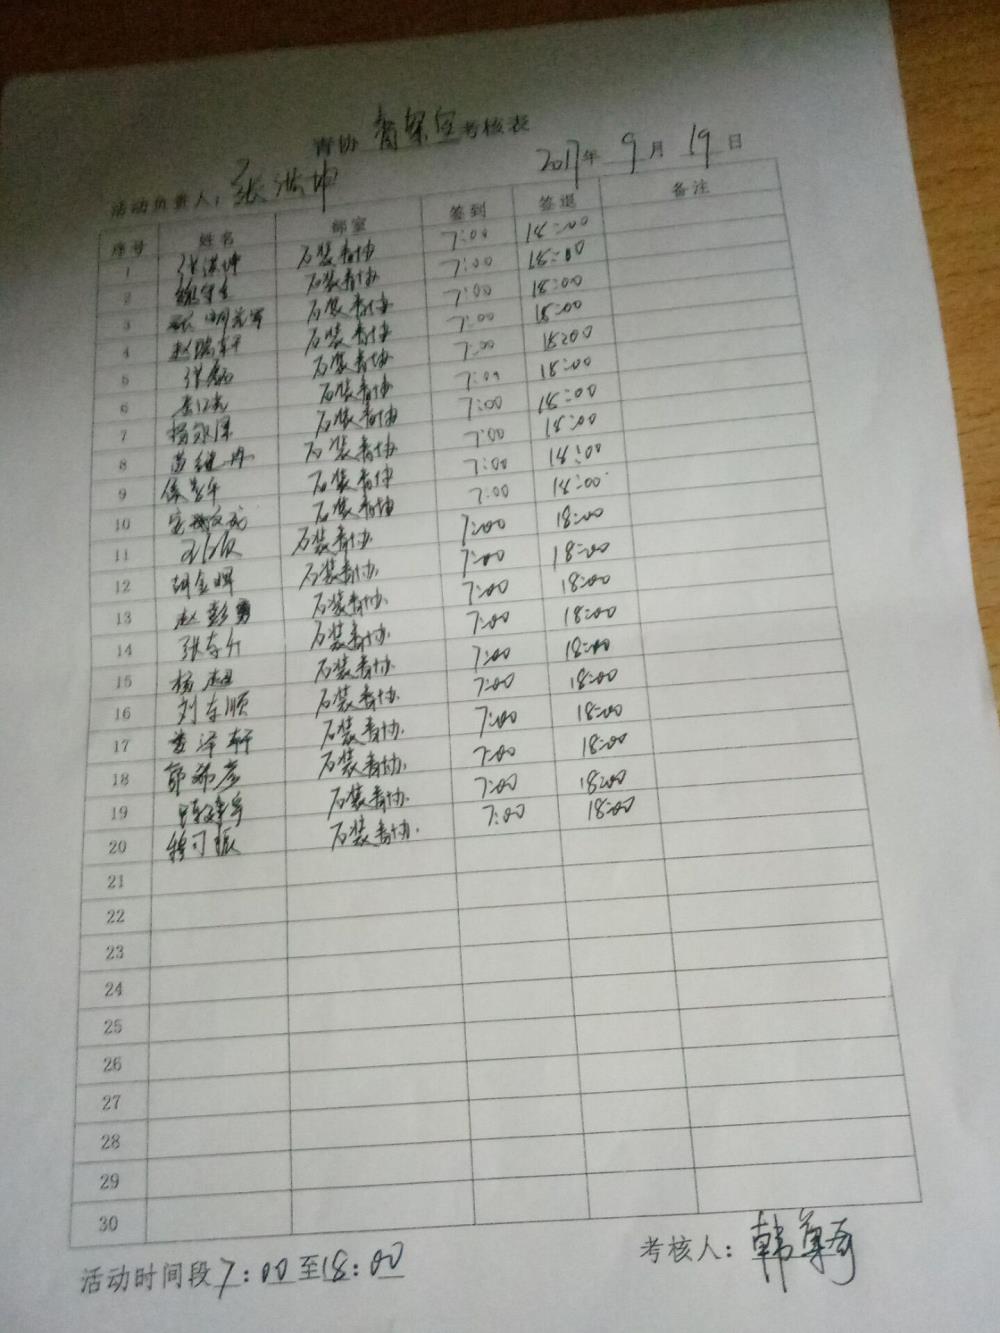 青协 考核表
2017年 9月 19日
活动负责人：张洪坤
序号 姓名 部室 签到 签退 备注
1 张洪坤 石装青协 7:00 18:00
2 石装青协 7:00 18:00
3 石装青协 7:00 18:00
4 赵瑞轩 石装青协 7:00 18:00
5 张磊 石装青协 7:00 18:00
6 石装青协 7:00 18:00
7 石装青协 7:00 18:00
8 石装青协 7:00 18:00
9 石装青协 7:00 18:00
10 石装青协 7:00 18:00
11 石装青协 7:00 18:00
12 胡金晖 石装青协 7:00 18:00
13 赵彭勇 石装青协 7:00 18:00
14 张东升 石装青协 7:00 18:00
15 杨超 石装青协 7:00 18:00
16 刘东顺 石装青协 7:00 18:00
17 姜泽轩 石装青协 7:00 18:00
18 郭希彦 石装青协 7:00 18:00
19 石装青协 7:00 18:00
20 穆可振 石装青协 7:00 18:00
21
22
23
24
25
26
27
28
29
30
活动时间段 7:00至18:00 考核人：韩